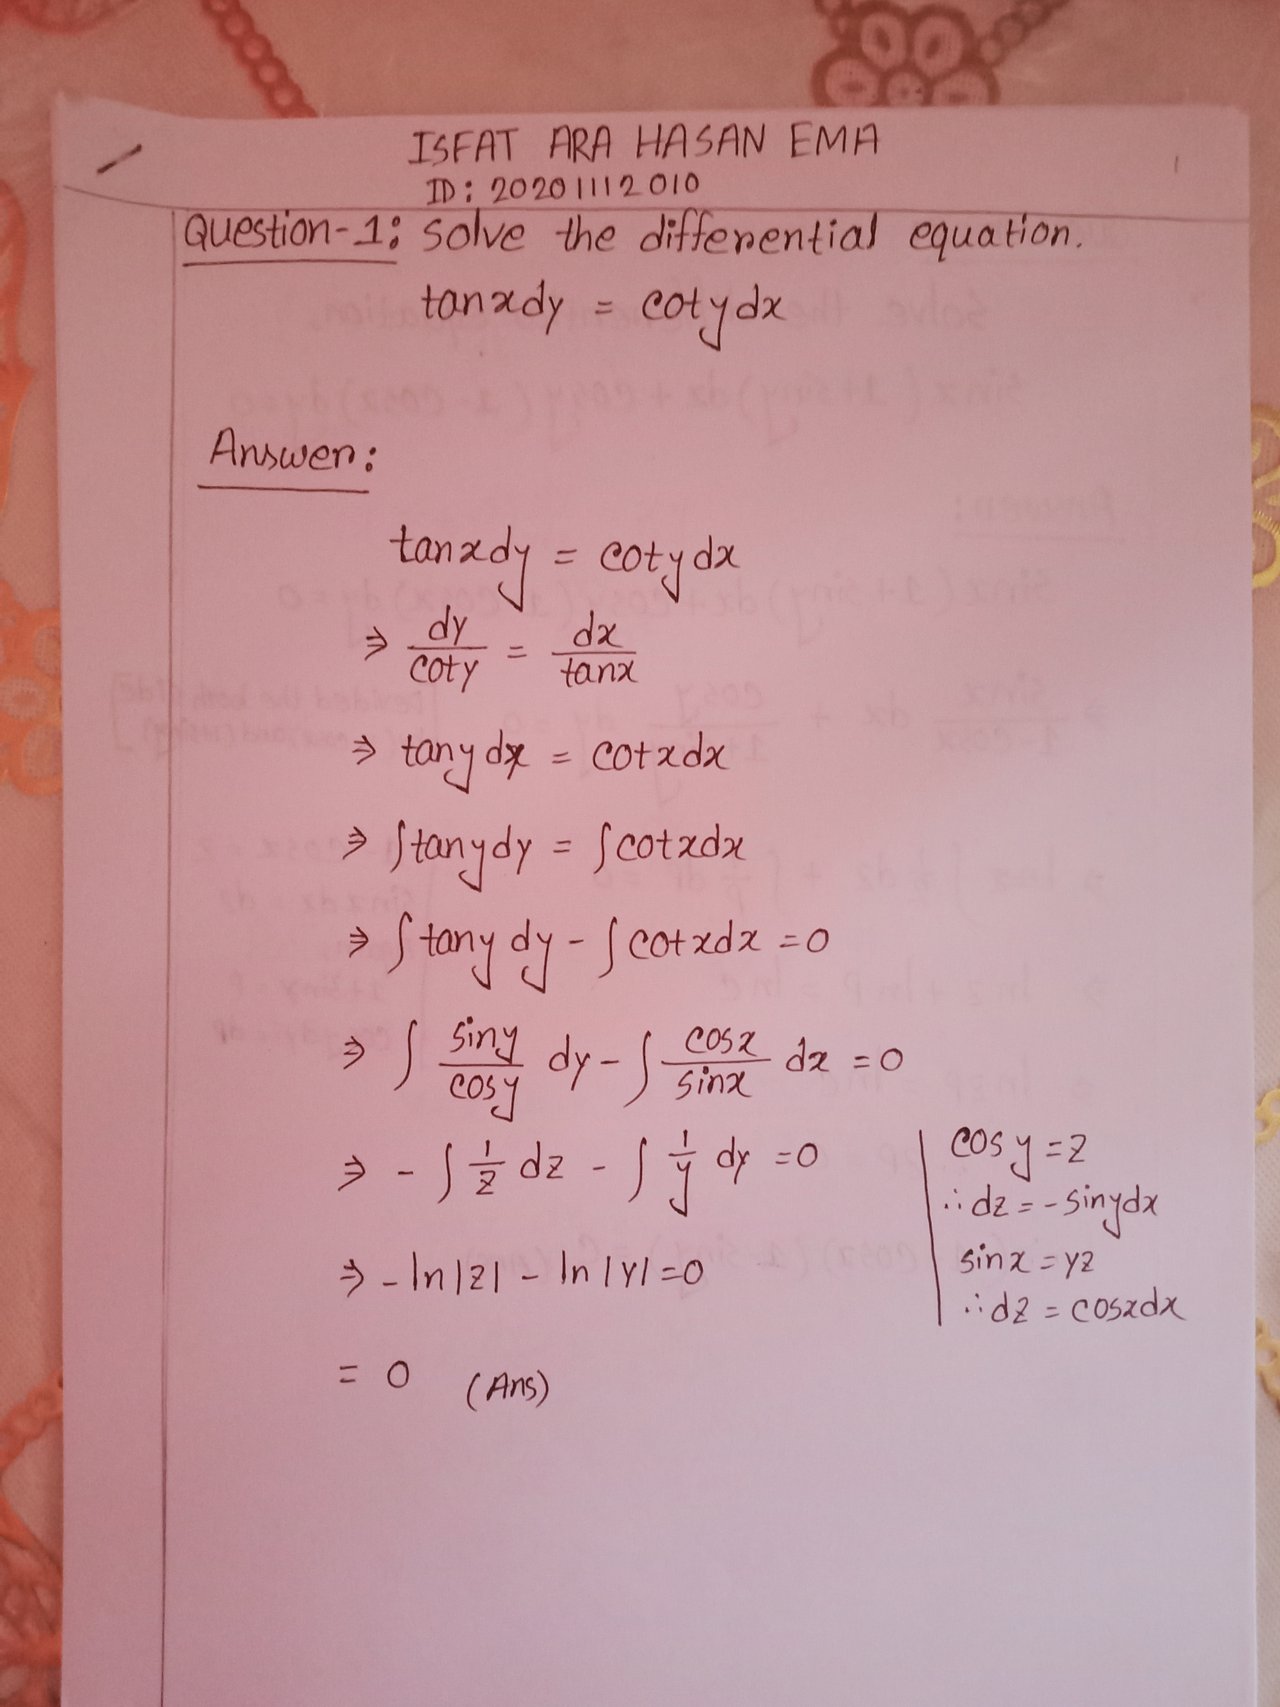 ISFAT ARA HASAN EMA
ID: 20201112010
1
Question-1: Solve the differential equation.
tanxdy = cotydx
Answer:
tanxdy = cotydx
⇒ dy/coty = dx/tanx
⇒ tanydy = cotxdx
⇒ ∫tanydy = ∫cotxdx
⇒ ∫tanydy - ∫cotxdx = 0
⇒ ∫ siny/cosy dy - ∫ cosx/sinx dx = 0
⇒ - ∫ 1/z dz - ∫ 1/y dy = 0
cosy = z
∴ dz = - sinydx
sinx = yz
∴ dz = cosxdx
⇒ - ln|z| - ln|y| = 0
= 0 (Ans)